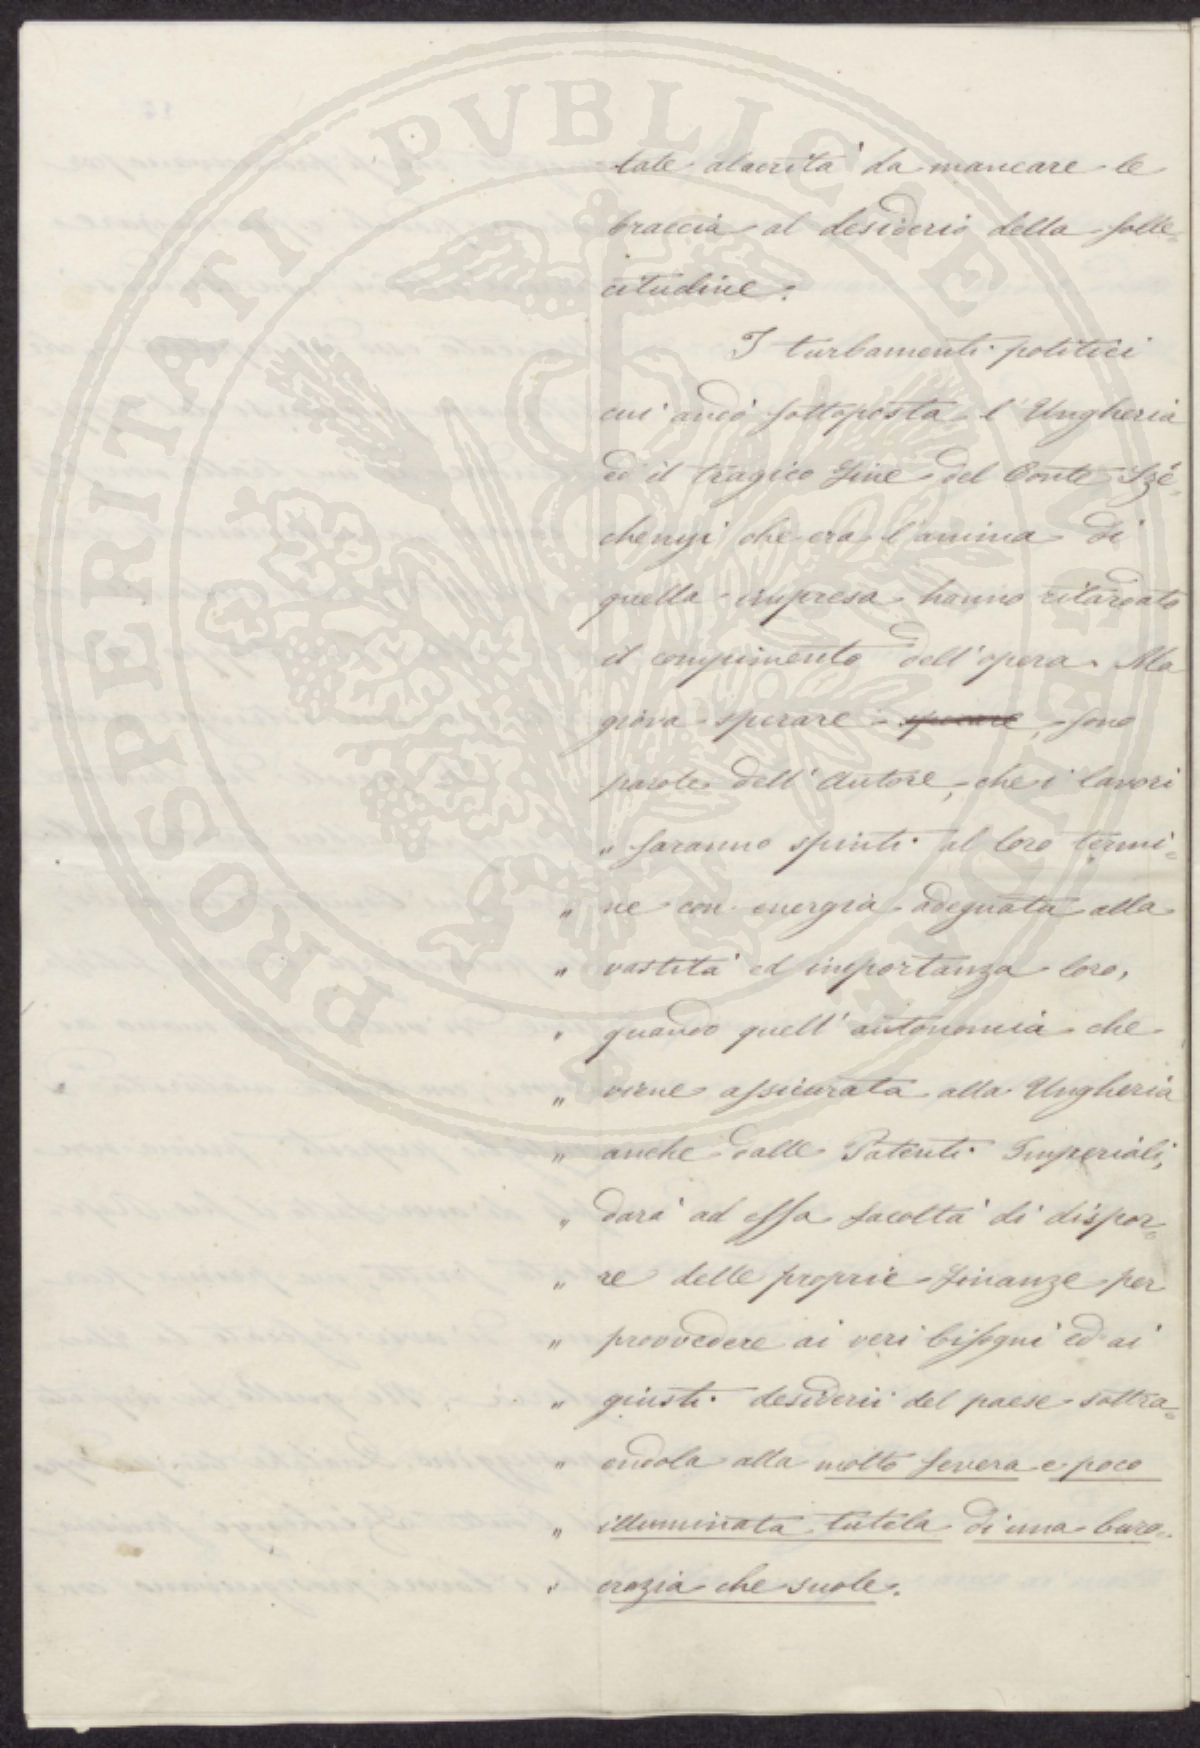 tale alacrità da mancare le
braccia al desiderio della solle-
citudine.
I turbamenti politici
cui andò sottoposta l'Ungheria
ed il tragico fine del Conte Szé-
chenyi che era l'anima di
quella impresa hanno ritardato
il compimento dell'opera. Ma
giova sperare sperare, sono
parole dell'Autore, che i lavori
" saranno spinti al loro termi-
" ne con energia adeguata alla
" vastità ed importanza loro,
" quando quell'autonomia che
" viene assicurata alla Ungheria
" anche dalle Patenti Imperiali,
" darà ad essa facoltà di dispor-
" re delle proprie finanze per
" provvedere ai veri bisogni ed ai
" giusti desiderii del paese sottra-
" endola alla molto severa e poco
" illuminata tutela di una buro-
" crazia che suole.
PROSPERITATI PVBLICAE AVGENDAE